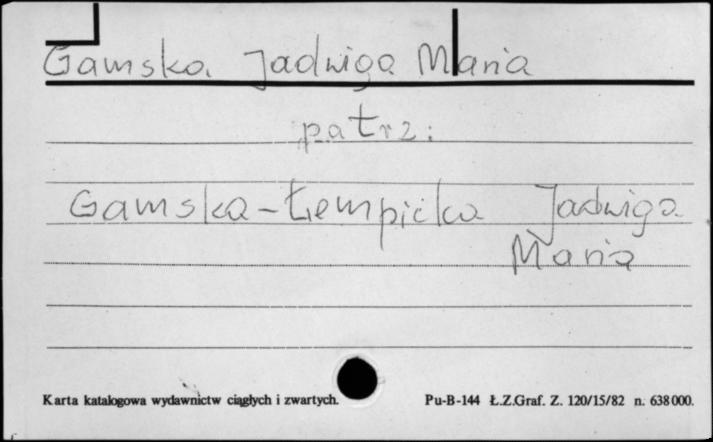 Gamska Jadwiga Maria
patrz:
Gamska-Łempicka Jadwiga
Maria
Karta katalogowa wydawnictw ciągłych i zwartych.
Pu-B-144 Ł.Z.Graf. Z. 120/15/82 n. 638000.